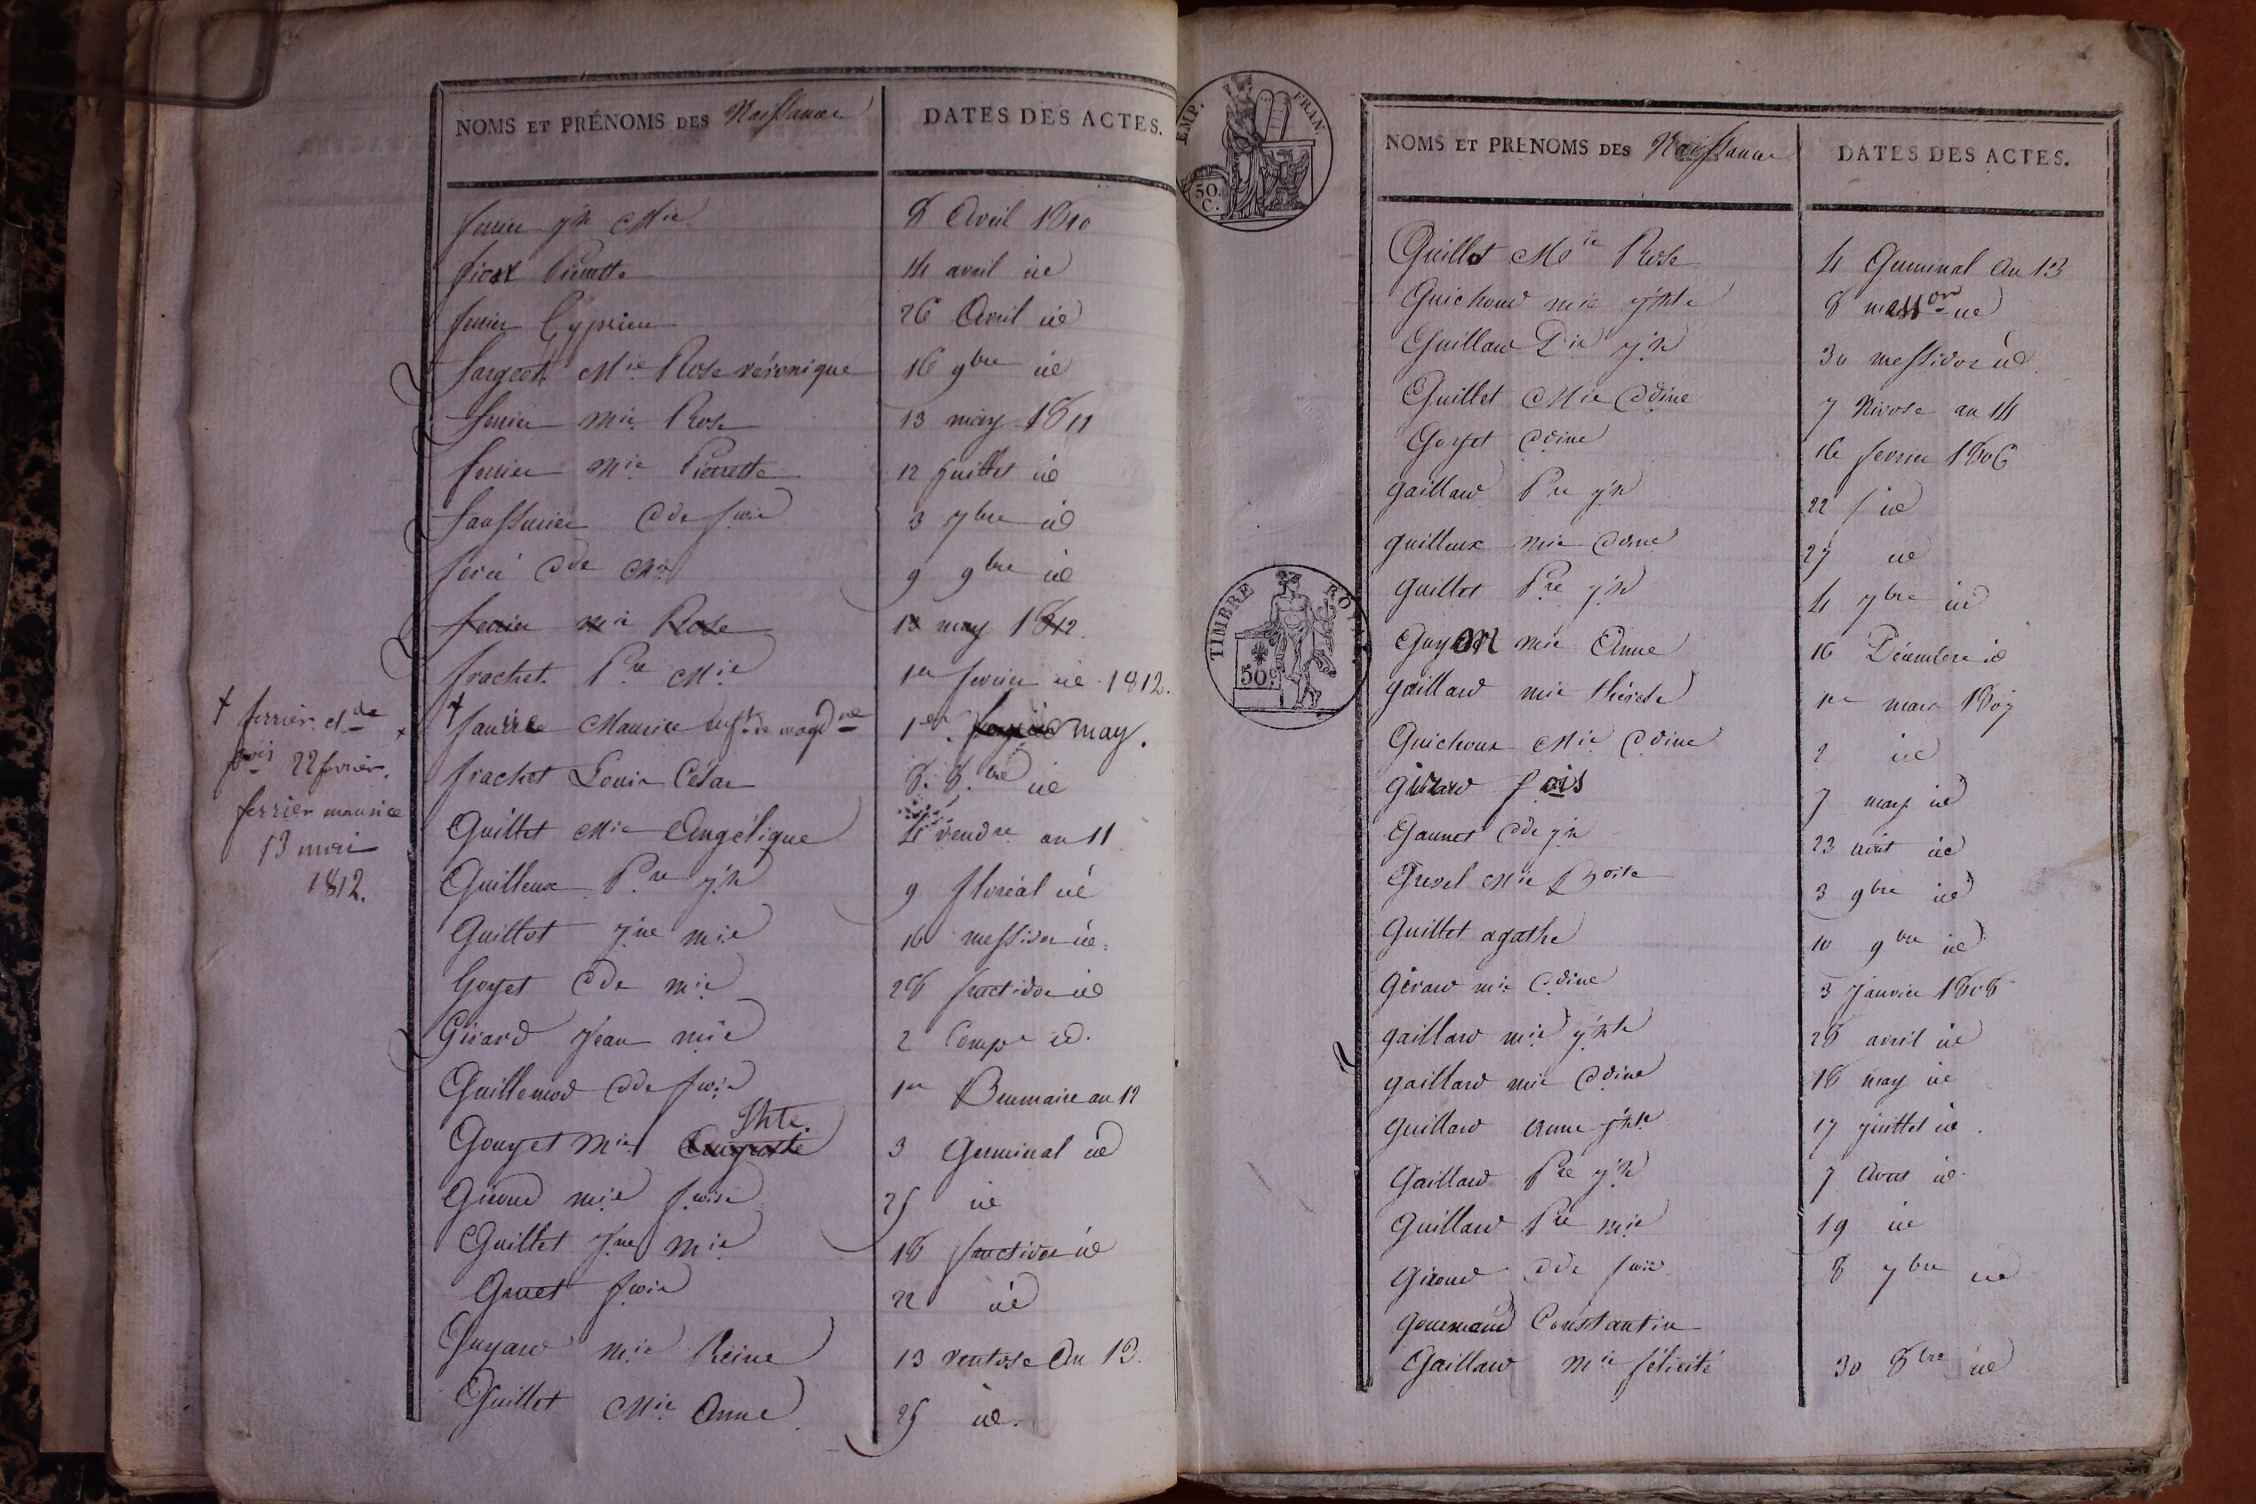 NOMS ET PRÉNOMS DES Naissance
DATES DES ACTES.
ferrier jh Mie 8 Avril 1810
Pierrette 14 avril id
ferrier Cyprien 26 Avril id
fargeot Mie Rose véronique 16 9bre id
ferrier mie Rose 13 may 1811
ferrier mie Pierrette 12 juillet id
Cde fois 3 7bre id
Cde 9 9bre id
ferrier mie Rose 13 may 1812.
frachet Pre Mie 1er fevrier id 1812.
† Maurice 1er may.
frachet Louis César 8. 8.bre id
Guillet Mie Angélique 4 vendre an 11
Guilleux Pre jh 9 floréal id
Guillot jne mie 16 messidor id.
Goyet Cde mie 28 fructidor id
Girard jean mie 2 Compre id.
Guillemod Cde fois 1er Brumaire an 12
Jhte.
Gouyet Mie 3 Germinal id
Giroud mie foise 25 id
Guillet jne Mie 18 fructidor id
Gruet fois 22 id
Guyard mie Reine 13 ventose an 13.
Guillot Mie Anne 25 id.
† ferrier cl de
fois 22 fevrier.
ferrier maurice
13 mai
1812.
EMP. FRAN.
50. C.
TIMBRE RO
50 C.
NOMS ET PRENOMS DES Naissance
DATES DES ACTES.
Guillot Mie Rose 4 Germinal an 13
Guichoud mie jhte 8 messor id
Guillard jh 30 messidor id.
Guillet Mie Cdine 7 Nivose an 14
Goyet Cdine 16 fevrier 1806
gaillard Pre jh 22 f id
guilleux mie Cdine 27 id
guillot Pre jh 4 7bre id
Guyon mie Anne 16 Décembre id
gaillard mie thérèse 1er mars 1807
Guichoux Mie Cdine 2 id
girard fois 7 may id
Gaunet Cde jh 23 aout id
Grevel Mie 3 9bre id
Guillet agathe 10 9bre id
Girard mie Cdine 3 Janvier 1808
gaillard mie jhte 28 avril id
gaillard mie Cdine 18 may id
Guillard Anne jhte 17 juillet id.
Gaillard Pre jh 7 Aout id.
Guillard Pre mie 19 id
Giroud Cde fois 8 7bre id
Gourmand Constantin
Gaillard Mie félicité 30 8bre id